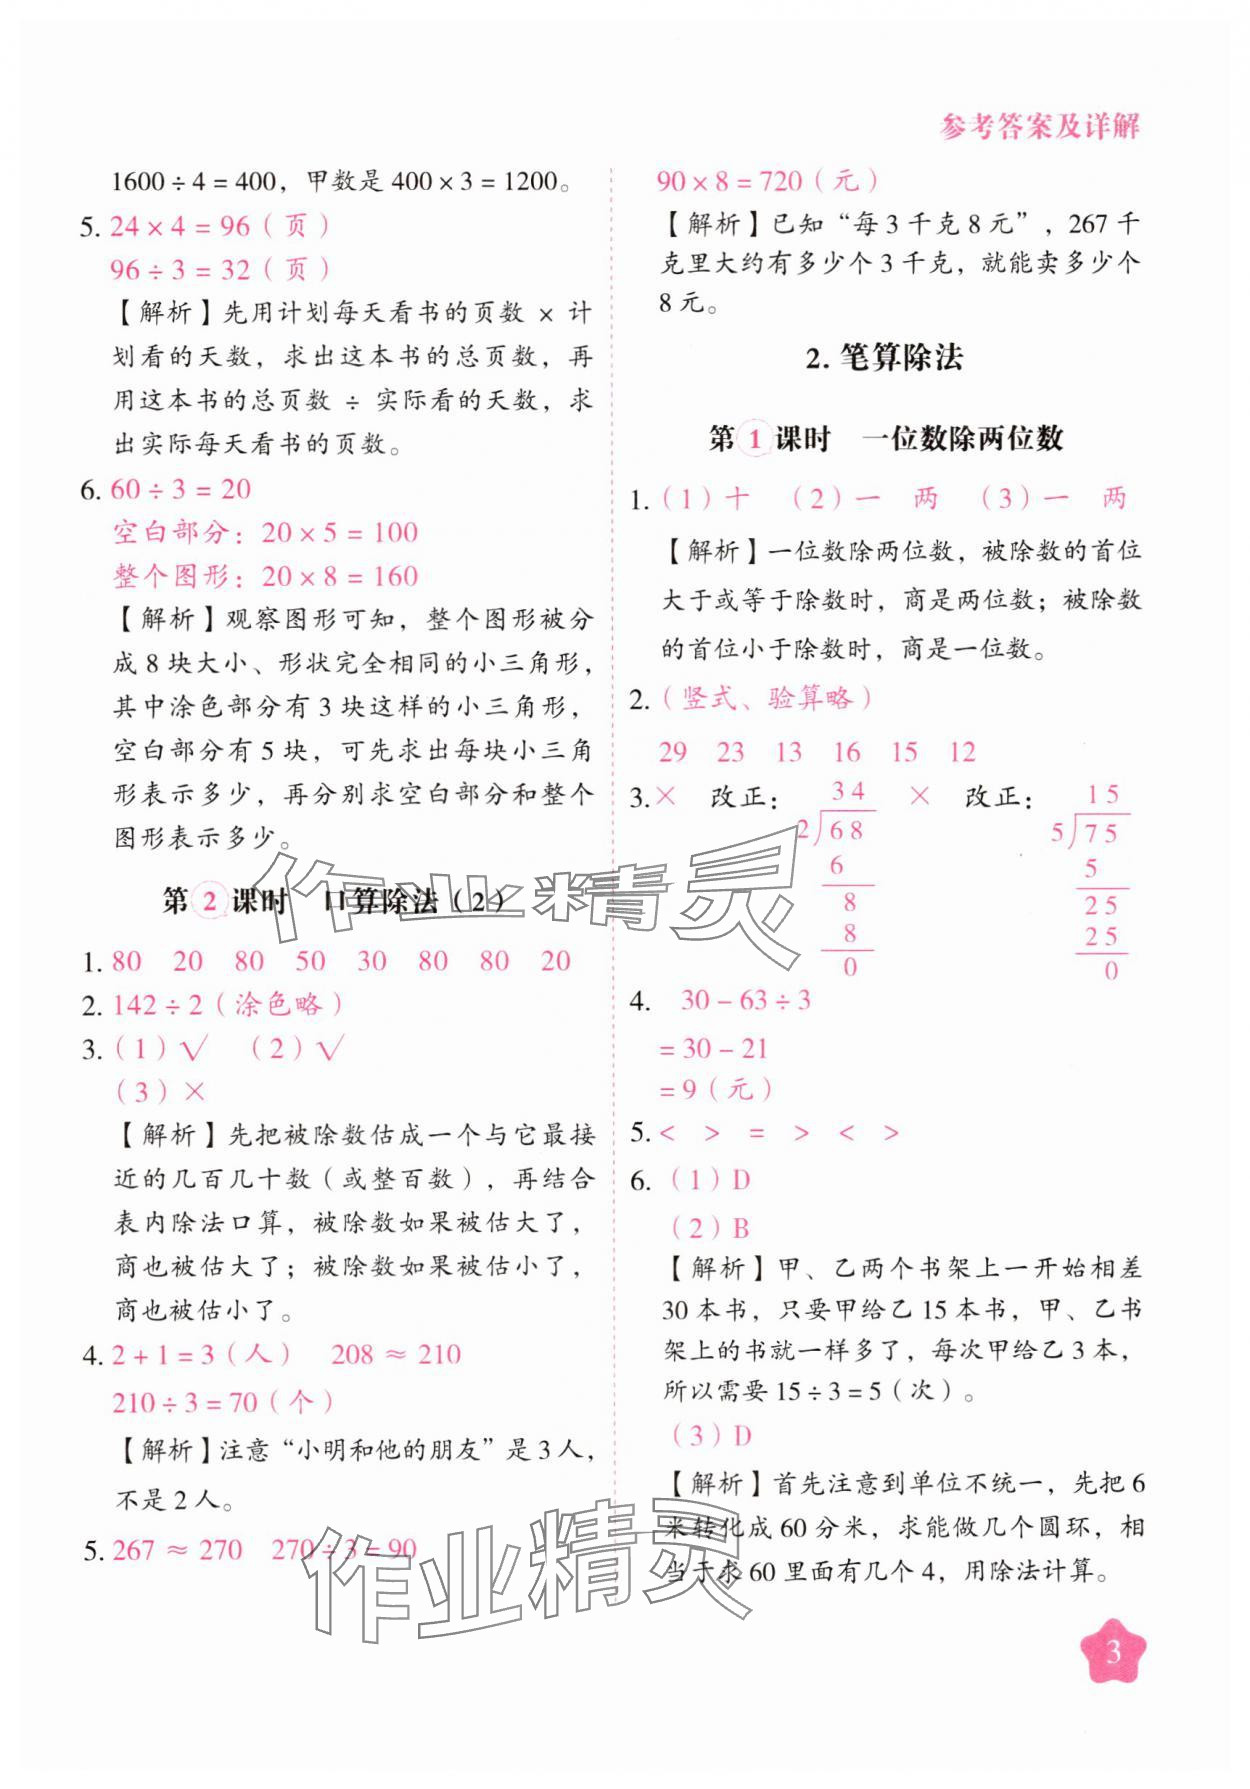 参考答案及详解
1600÷4=400，甲数是400×3=1200。
5. 24×4=96（页）
96÷3=32（页）
【解析】先用计划每天看书的页数 × 计
划看的天数，求出这本书的总页数，再
用这本书的总页数 ÷ 实际看的天数，求
出实际每天看书的页数。
6. 60÷3=20
空白部分：20×5=100
整个图形：20×8=160
【解析】观察图形可知，整个图形被分
成8块大小、形状完全相同的小三角形，
其中涂色部分有3块这样的小三角形，
空白部分有5块，可先求出每块小三角
形表示多少，再分别求空白部分和整个
图形表示多少。
第2课时 口算除法（2）
1. 80 20 80 50 30 80 80 20
2. 142÷2（涂色略）
3.（1）√ （2）√
（3）×
【解析】先把被除数估成一个与它最接
近的几百几十数（或整百数），再结合
表内除法口算，被除数如果被估大了，
商也被估大了；被除数如果被估小了，
商也被估小了。
4. 2+1=3（人） 208≈210
210÷3=70（个）
【解析】注意“小明和他的朋友”是3人，
不是2人。
5. 267≈270 270÷3=90
90×8=720（元）
【解析】已知“每3千克8元”，267千
克里大约有多少个3千克，就能卖多少个
8元。
2. 笔算除法
第1课时 一位数除两位数
1.（1）十 （2）一 两 （3）一 两
【解析】一位数除两位数，被除数的首位
大于或等于除数时，商是两位数；被除数
的首位小于除数时，商是一位数。
2.（竖式、验算略）
29 23 13 16 15 12
3. × 改正： 34 × 改正： 15
2 68 5 75
6 5
8 25
8 25
0 0
4. 30-63÷3
=30-21
=9（元）
5. < > = > < >
6.（1）D
（2）B
【解析】甲、乙两个书架上一开始相差
30本书，只要甲给乙15本书，甲、乙书
架上的书就一样多了，每次甲给乙3本，
所以需要15÷3=5（次）。
（3）D
【解析】首先注意到单位不统一，先把6
米转化成60分米，求能做几个圆环，相
当于求60里面有几个4，用除法计算。
3
作业精灵
作业精灵